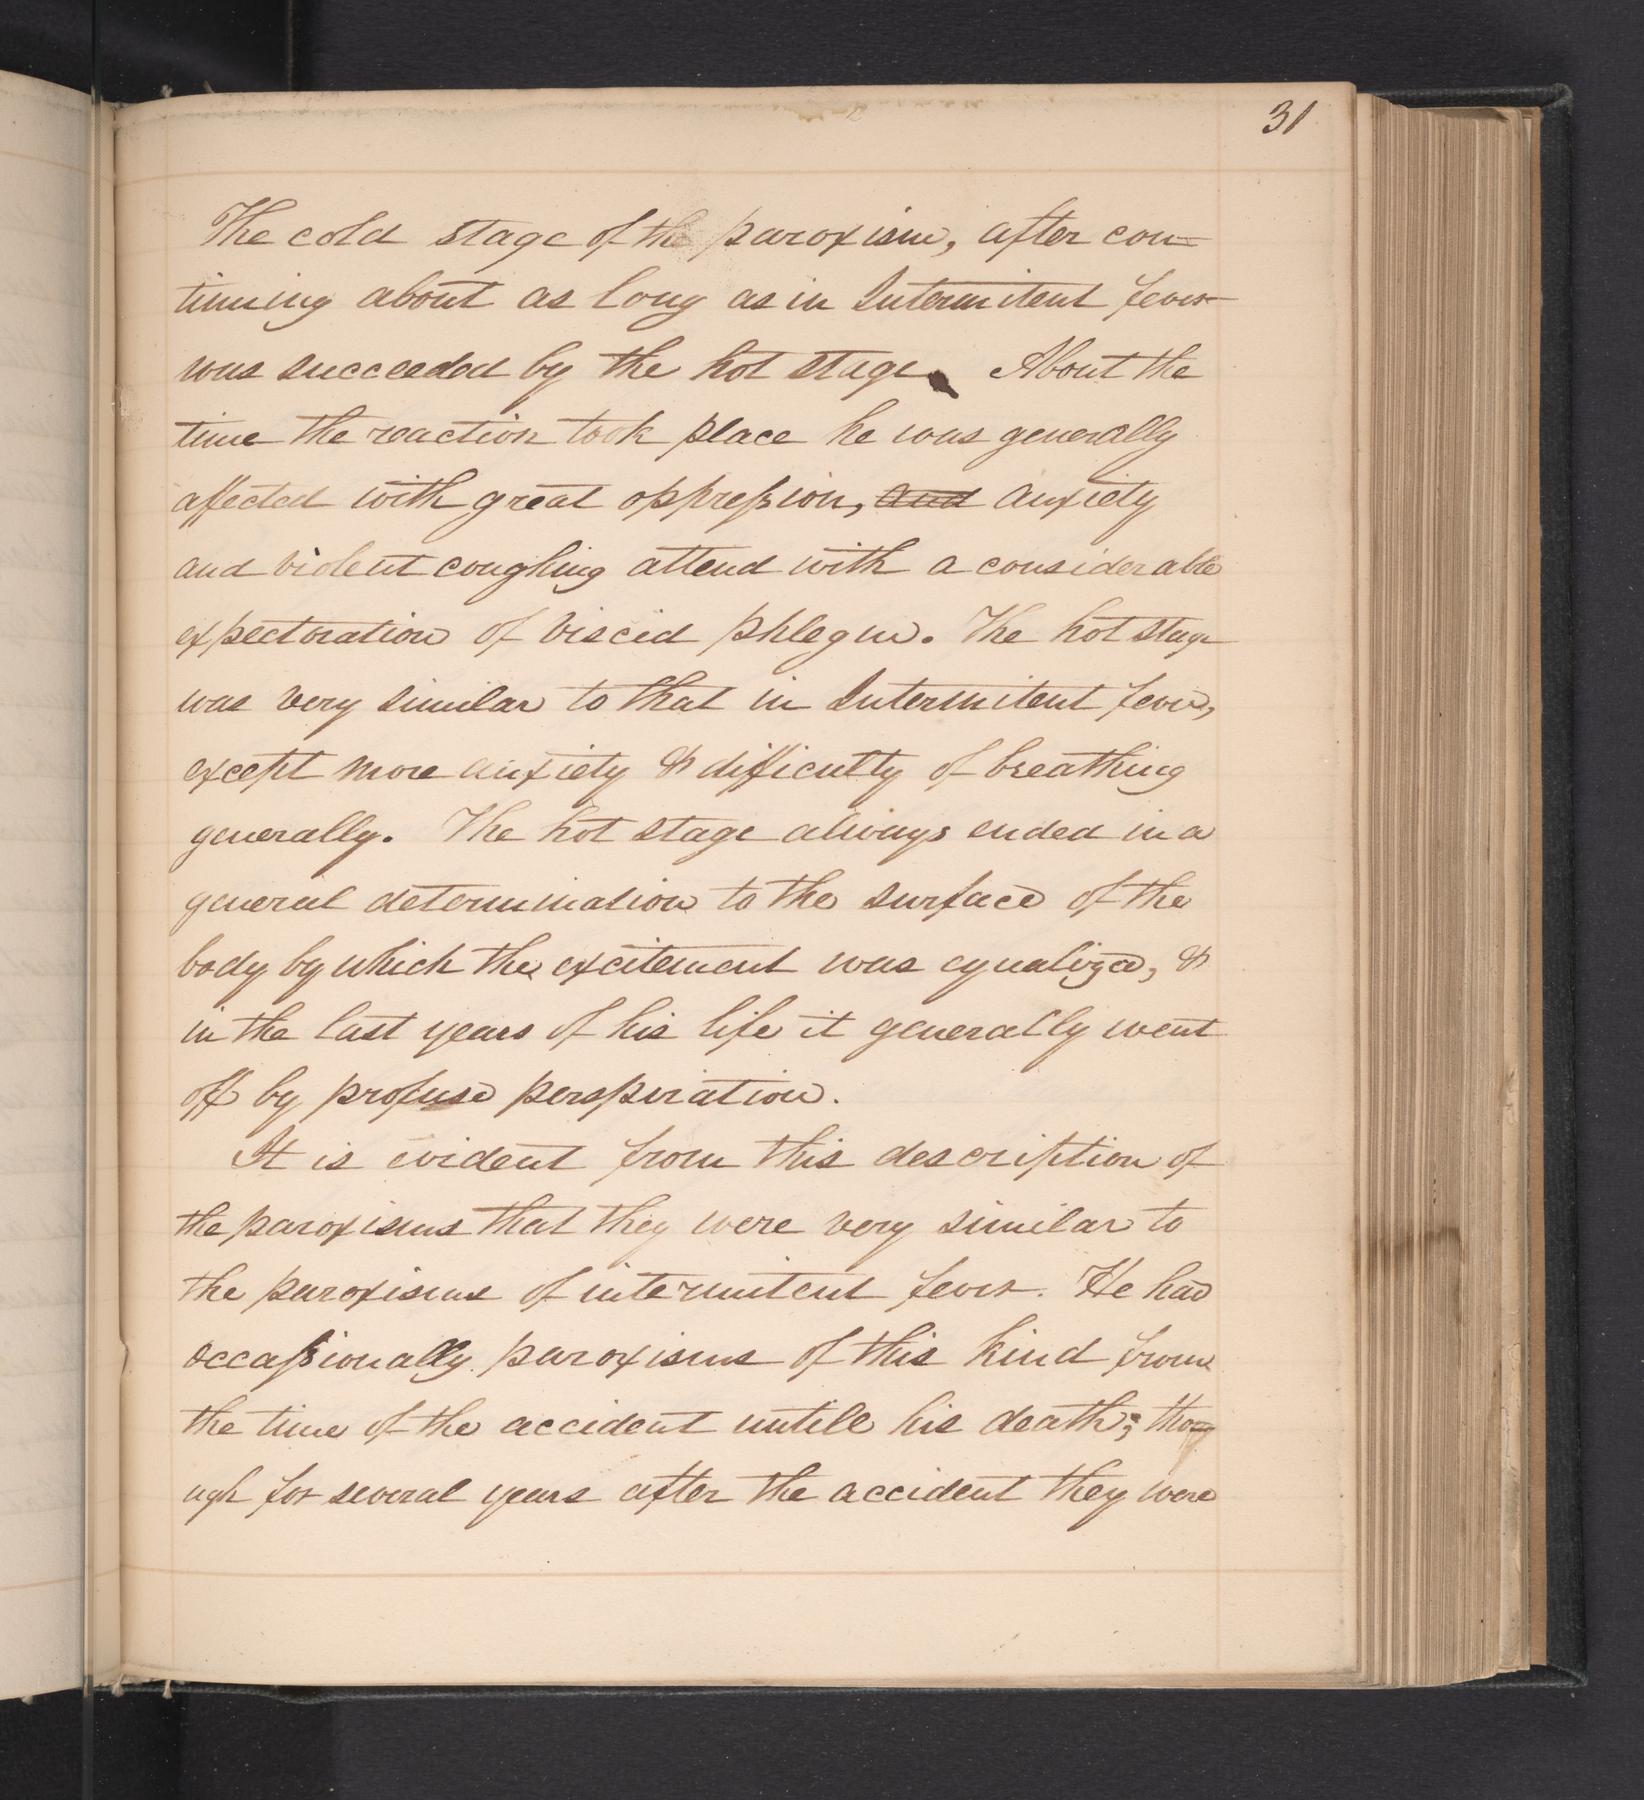 31
The cold stage of the paroxism, after con=
tinuing about as long as in Intermitent fever
was succeeded by the hot stage. About the
time the reaction took place he was generally
affected with great oppression, and anxiety
and violent coughing attend with a considerable
expectoration of viscid phlegm. The hot stage
was very similar to that in Intermitent fever,
except more anxiety & difficulty of breathing
generally. The hot stage always ended in a
general determination to the surface of the
body by which the excitement was equalized, &
in the last years of his life it generally went
off by profuse perspiration.
It is evident from this description of
the paroxisms that they were very similar to
the paroxisms of intermitent fever. He had
occassionally paroxisms of this kind from
the time of the accident untill his death; tho=
ugh for several years after the accident they were